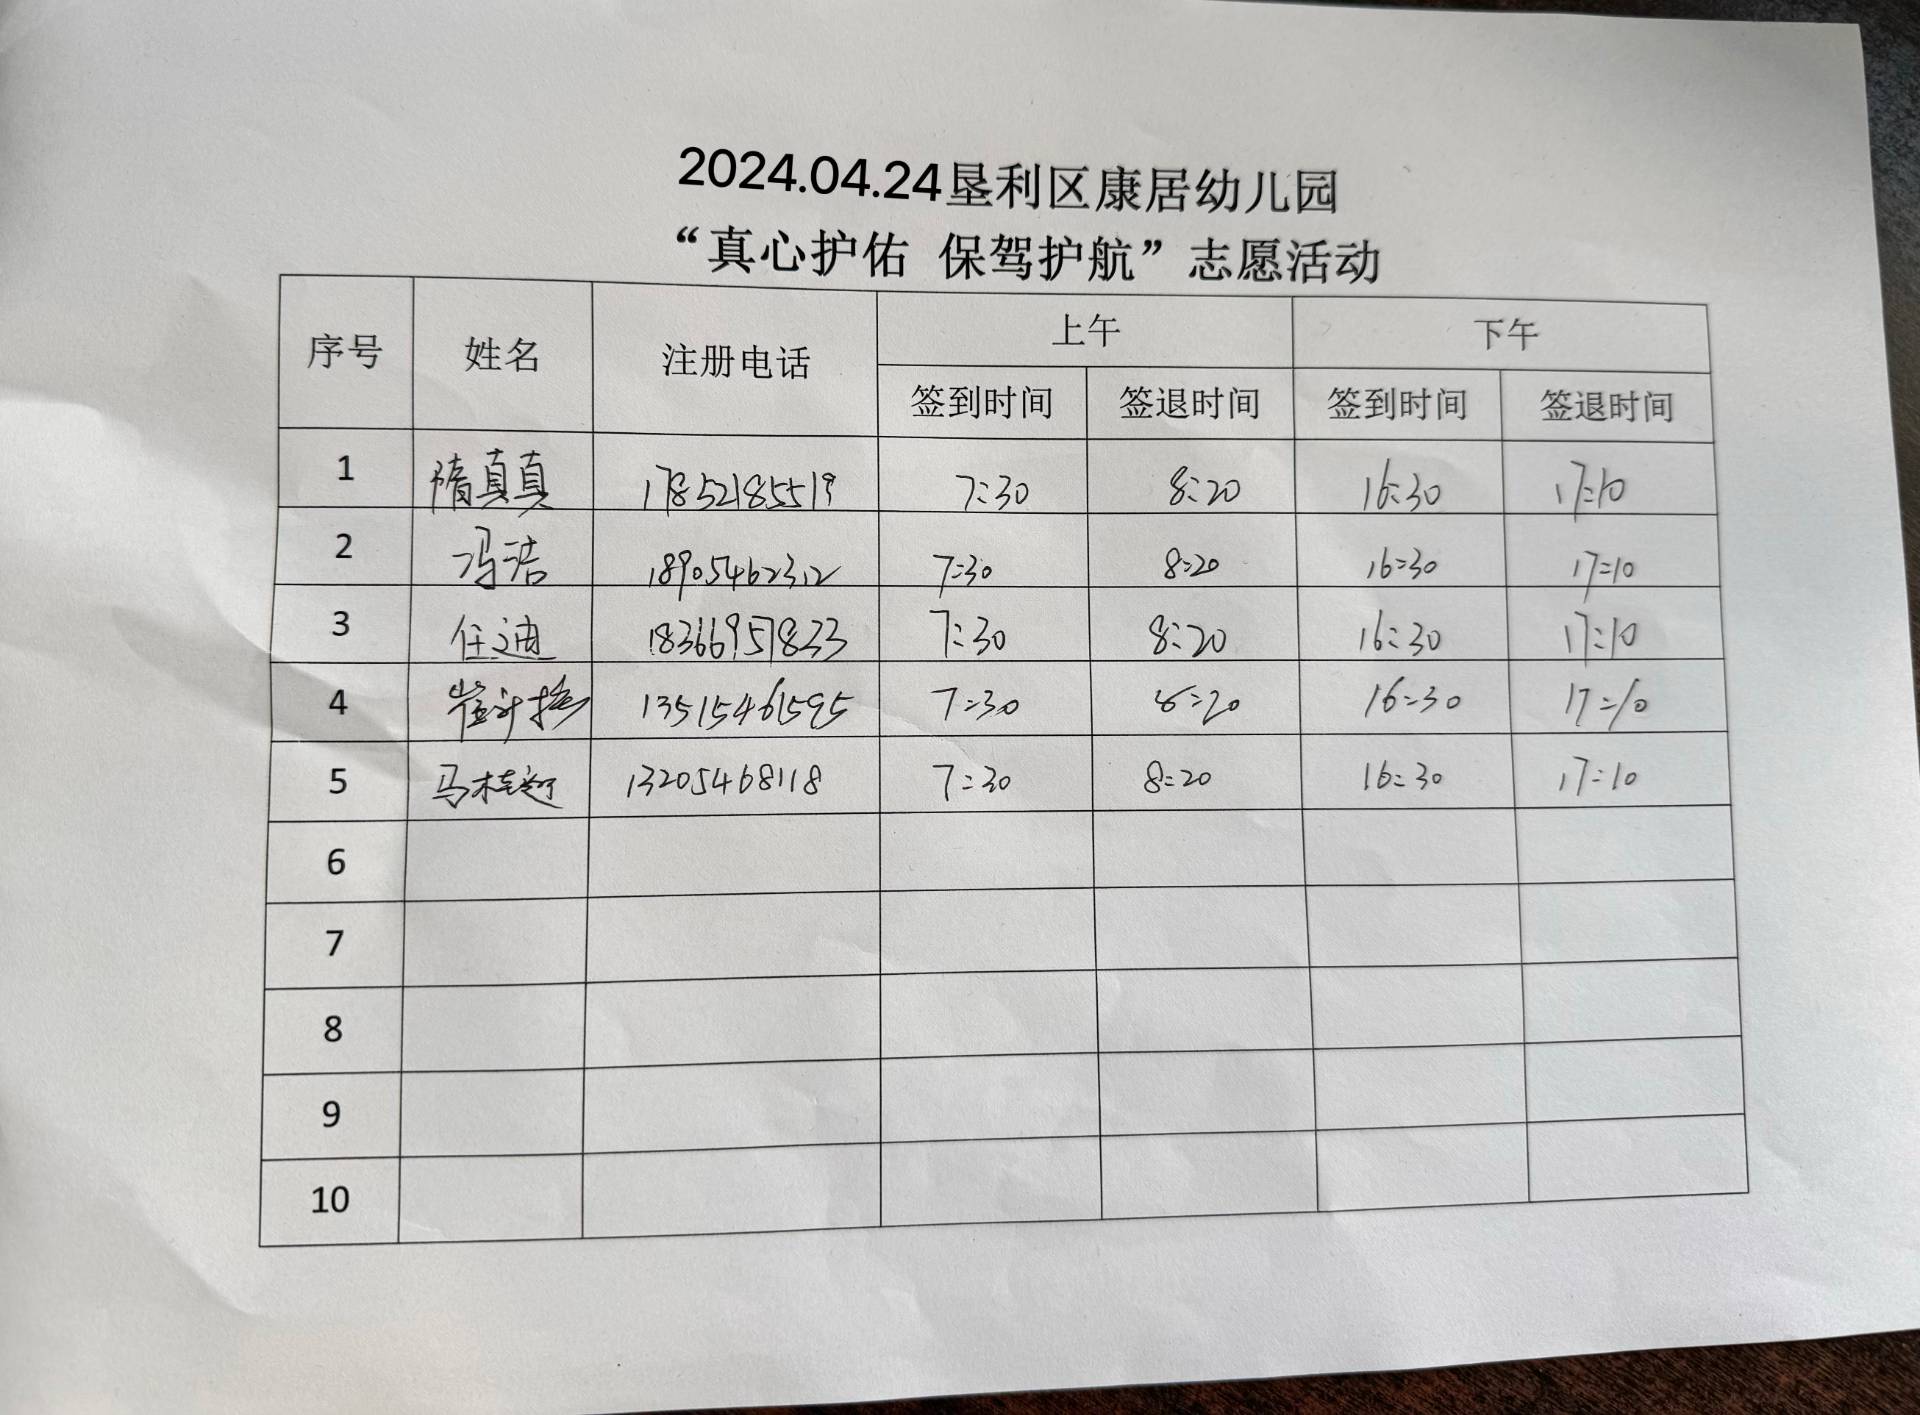 2024.04.24垦利区康居幼儿园
“真心护佑 保驾护航”志愿活动
序号 姓名 注册电话 上午 下午
签到时间 签退时间 签到时间 签退时间
1 隋真真 17852185519 7:30 8:20 16:30 17:10
2 冯洁 18905462312 7:30 8:20 16:30 17:10
3 任迪 18366957833 7:30 8:20 16:30 17:10
4 13515461595 7:30 8:20 16:30 17:10
5 马桂 13205468118 7:30 8:20 16:30 17:10
6
7
8
9
10